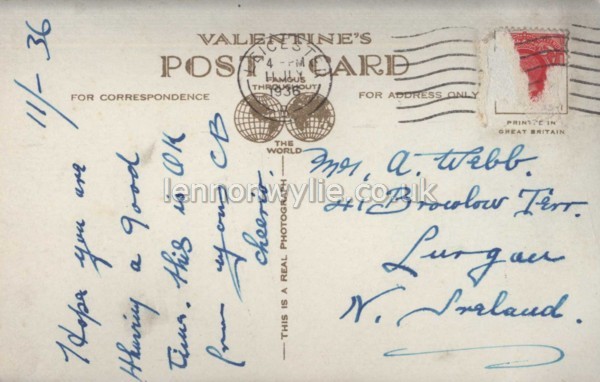 VALENTINE'S
POST CARD
FAMOUS
THROUGHOUT
THE
WORLD
FOR CORRESPONDENCE
FOR ADDRESS ONLY
THIS IS A REAL PHOTOGRAPH
PRINTED IN
GREAT BRITAIN
4 - PM
1936
11/- 36
Hope you are
Having a good
time. this is OK
from young CB
cheerio.
Mr. A. Webb.
41 Browlow Terr.
Lurgan
N. Ireland.
lennonwylie.co.uk